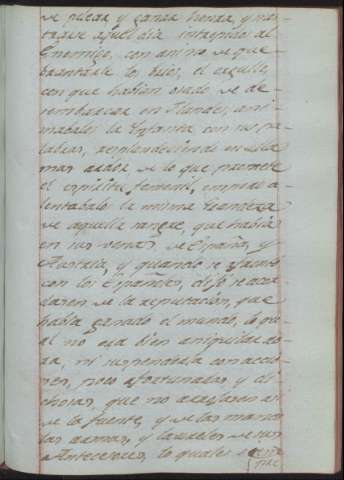 de placer y ganar honra, y mos-
trar aquel dia intrepido al
Enemigo, con animo de que-
brantarle los brios, el orgullo,
con que habian osado de de-
sembarcar en Flandes, ani-
mabales la Infanta con sus pa-
labras, resplandeciendo en ella
mas ardor de lo que promete
el espiritu femenil, empero a-
lentabalo la misma Grandeza
de aquella sangre, que habia
en sus venas de España, y
Austria, y quando se
con los Españoles, dijo se acor-
dasen de la reputacion, que
habia ganado el mundo, lo qu-
al no era bien aniquilar aho-
ra, ni suspenderla con accio-
nes, poco afortunadas, y di-
chosas, que no
de la fuente, y de las manos
las armas, y laureles de sus
Antecesores, lo quales